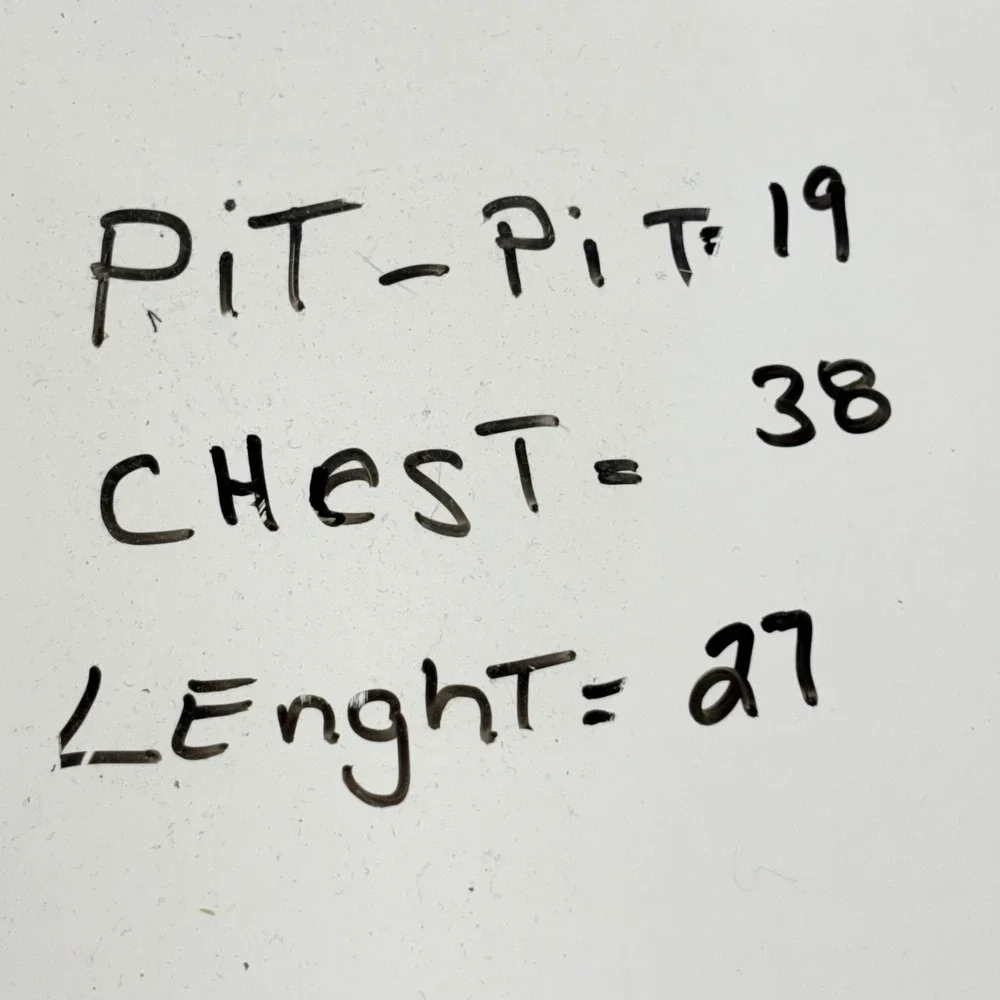 PiT - PiT= 19
CHeST = 38
LEnghT = 27